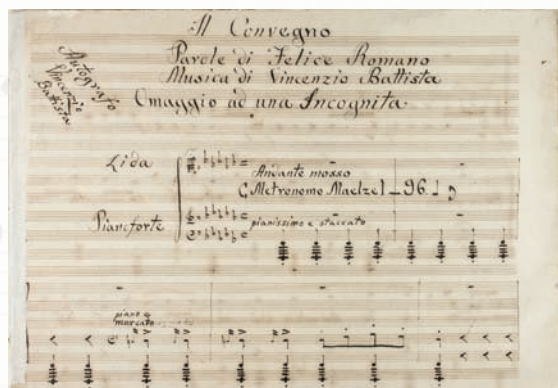 Il Convegno
Parole di Felice Romano
Musica di Vincenzio Battista
Omaggio ad una Incognita
Autografo
Vincenzio
Battista
Lida
Andante mosso
Metronomo Maelzel 96
Pianoforte
pianissimo e staccato
piano e
marcato